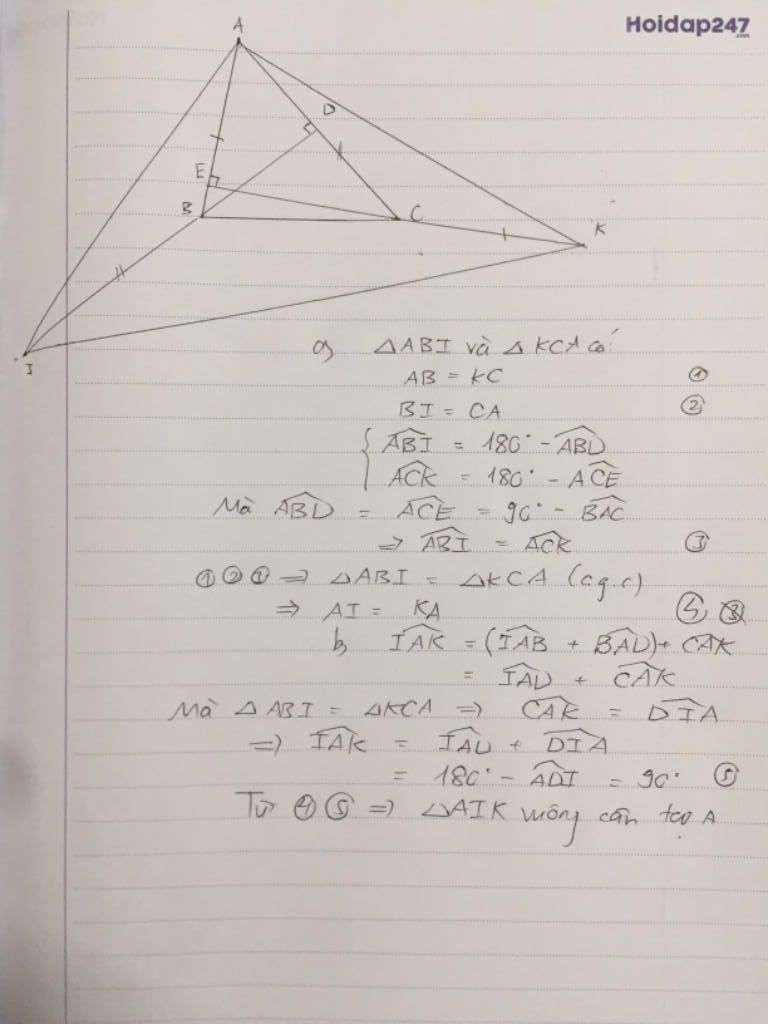 Hoidap247
.com
A
D
E
B
C
K
I
a) △ABI và △KCA có:
AB = KC ①
BI = CA ②
{ ABI = 180° - ABD
ACK = 180° - ACE
Mà ABD = ACE = 90° - BAC
=> ABI = ACK ③
①②① => △ABI = △KCA (c.g.c)
=> AI = KA ④
b) IAK = (IAB + BAD) + CAK
= IAD + CAK
Mà △ABI = △KCA => CAK = DIA
=> IAK = IAD + DIA
= 180° - ADI = 90° ⑤
Từ ④⑤ => △AIK vuông cân tại A